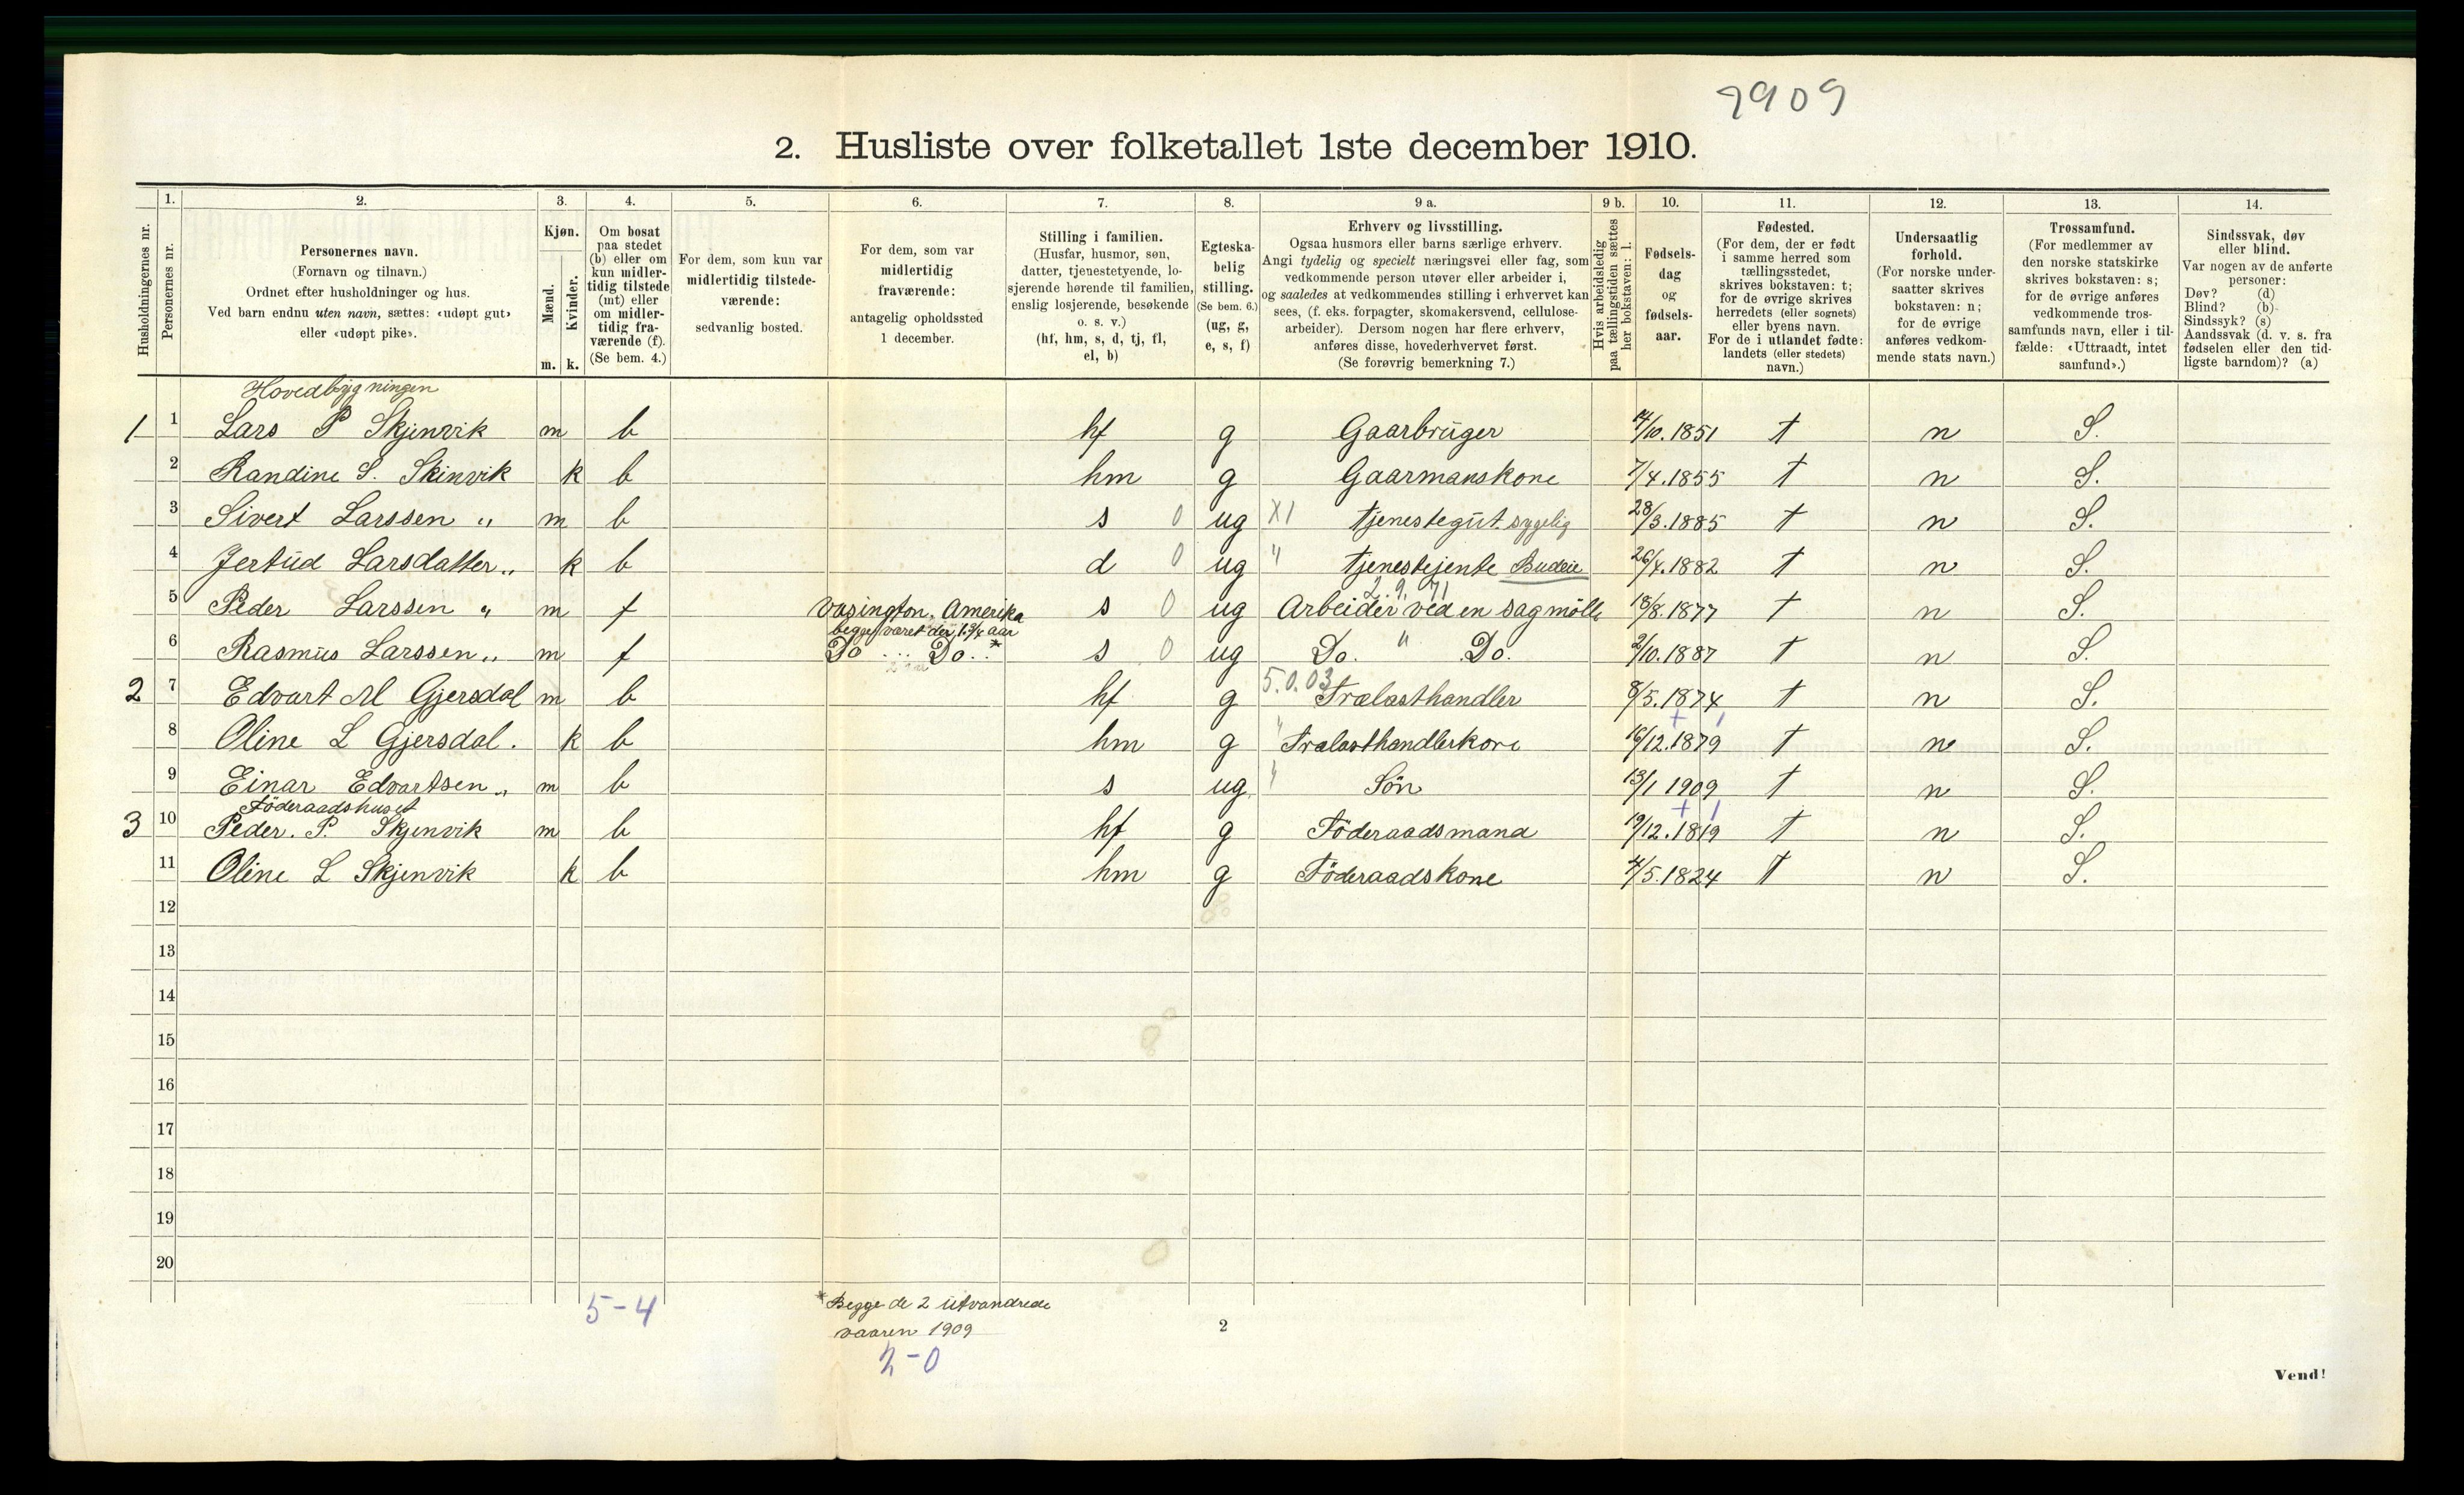 7909
2. Husliste over folketallet 1ste december 1910.
Husholdningernes nr.
1. Personernes nr.
2. Personernes navn. (Fornavn og tilnavn.) Ordnet efter husholdninger og hus. Ved barn endnu uten navn, sættes: «udøpt gut» eller «udøpt pike».
3. Kjøn. Mænd. m. Kvinder. k.
4. Om bosat paa stedet (b) eller om kun midlertidig tilstede (mt) eller om midlertidig fraværende (f). (Se bem. 4.)
5. For dem, som kun var midlertidig tilstedeværende: sedvanlig bosted.
6. For dem, som var midlertidig fraværende: antagelig opholdssted 1 december.
7. Stilling i familien. (Husfar, husmor, søn, datter, tjenestetyende, losjerende hørende til familien, enslig losjerende, besøkende o. s. v.) (hf, hm, s, d, tj, fl, el, b)
8. Egteskabelig stilling. (Se bem. 6.) (ug, g, e, s, f)
9 a. Erhverv og livsstilling. Ogsaa husmors eller barns særlige erhverv. Angi tydelig og specielt næringsvei eller fag, som vedkommende person utøver eller arbeider i, og saaledes at vedkommendes stilling i erhvervet kan sees, (f. eks. forpagter, skomakersvend, cellulosearbeider). Dersom nogen har flere erhverv, anføres disse, hovederhvervet først. (Se forøvrig bemerkning 7.)
9 b. Hvis arbeidsledig paa tællingstiden sættes her bokstaven: l.
10. Fødselsdag og fødselsaar.
11. Fødested. (For dem, der er født i samme herred som tællingsstedet, skrives bokstaven: t; for de øvrige skrives herredets (eller sognets) eller byens navn. For de i utlandet fødte: landets (eller stedets) navn.)
12. Undersaatlig forhold. (For norske undersaatter skrives bokstaven: n; for de øvrige anføres vedkommende stats navn.)
13. Trossamfund. (For medlemmer av den norske statskirke skrives bokstaven: s; for de øvrige anføres vedkommende trossamfunds navn, eller i tilfælde: «Uttraadt, intet samfund».)
14. Sindssvak, døv eller blind. Var nogen av de anførte personer: Døv? (d) Blind? (b) Sindssyk? (s) Aandssvak (d. v. s. fra fødselen eller den tidligste barndom)? (a)
Hovedbygningen
1 1 Lars P Skjenvik m b hf g Gaarbrüger 14/10.1851 t n S.
2 Randine S. Skinvik k b hm g Gaarmanskone 7/4.1855 t n S.
3 Sivert Larssen " m b s 0 ug X1 tjenestegüt sygelig 28/3.1885 t n S.
4 Jertüd Larsdatter " k b d 0 ug " tjenestejente Budeie 26/4.1882 t n S.
2.9.71
5 Peder Larssen " m f Vasington, Amerika s 0 ug Arbeider ved en sagmölle 18/8.1877 t n S.
begge været der 1 3/4 aar
6 Rasmüs Larssen " m f Do ... Do. * s 0 ug Do. " Do. 2/10.1887 t n S.
5.0.03
2 7 Edvart M Gjersdal m b hf g Trælasthandler 8/5.1874 t n S.
8 Oline L Gjersdal. k b hm g " Trælasthandlerkone 16/12.1879 t n S.
9 Einar Edvartsen " m b s ug " Sön 13/1 1909 t n S.
Föderaadshuset
3 10 Peder. P. Skjenvik m b hf g Föderaadsmand 19/12.1819 t n S.
11 Oline L Skjenvik k b hm g Föderaadskone 4/5.1824 t n S.
12
13
14
15
16
17
18
19
20
5-4
* Begge de 2 ütvandrede
vaaren 1909
2-0
2
Vend!